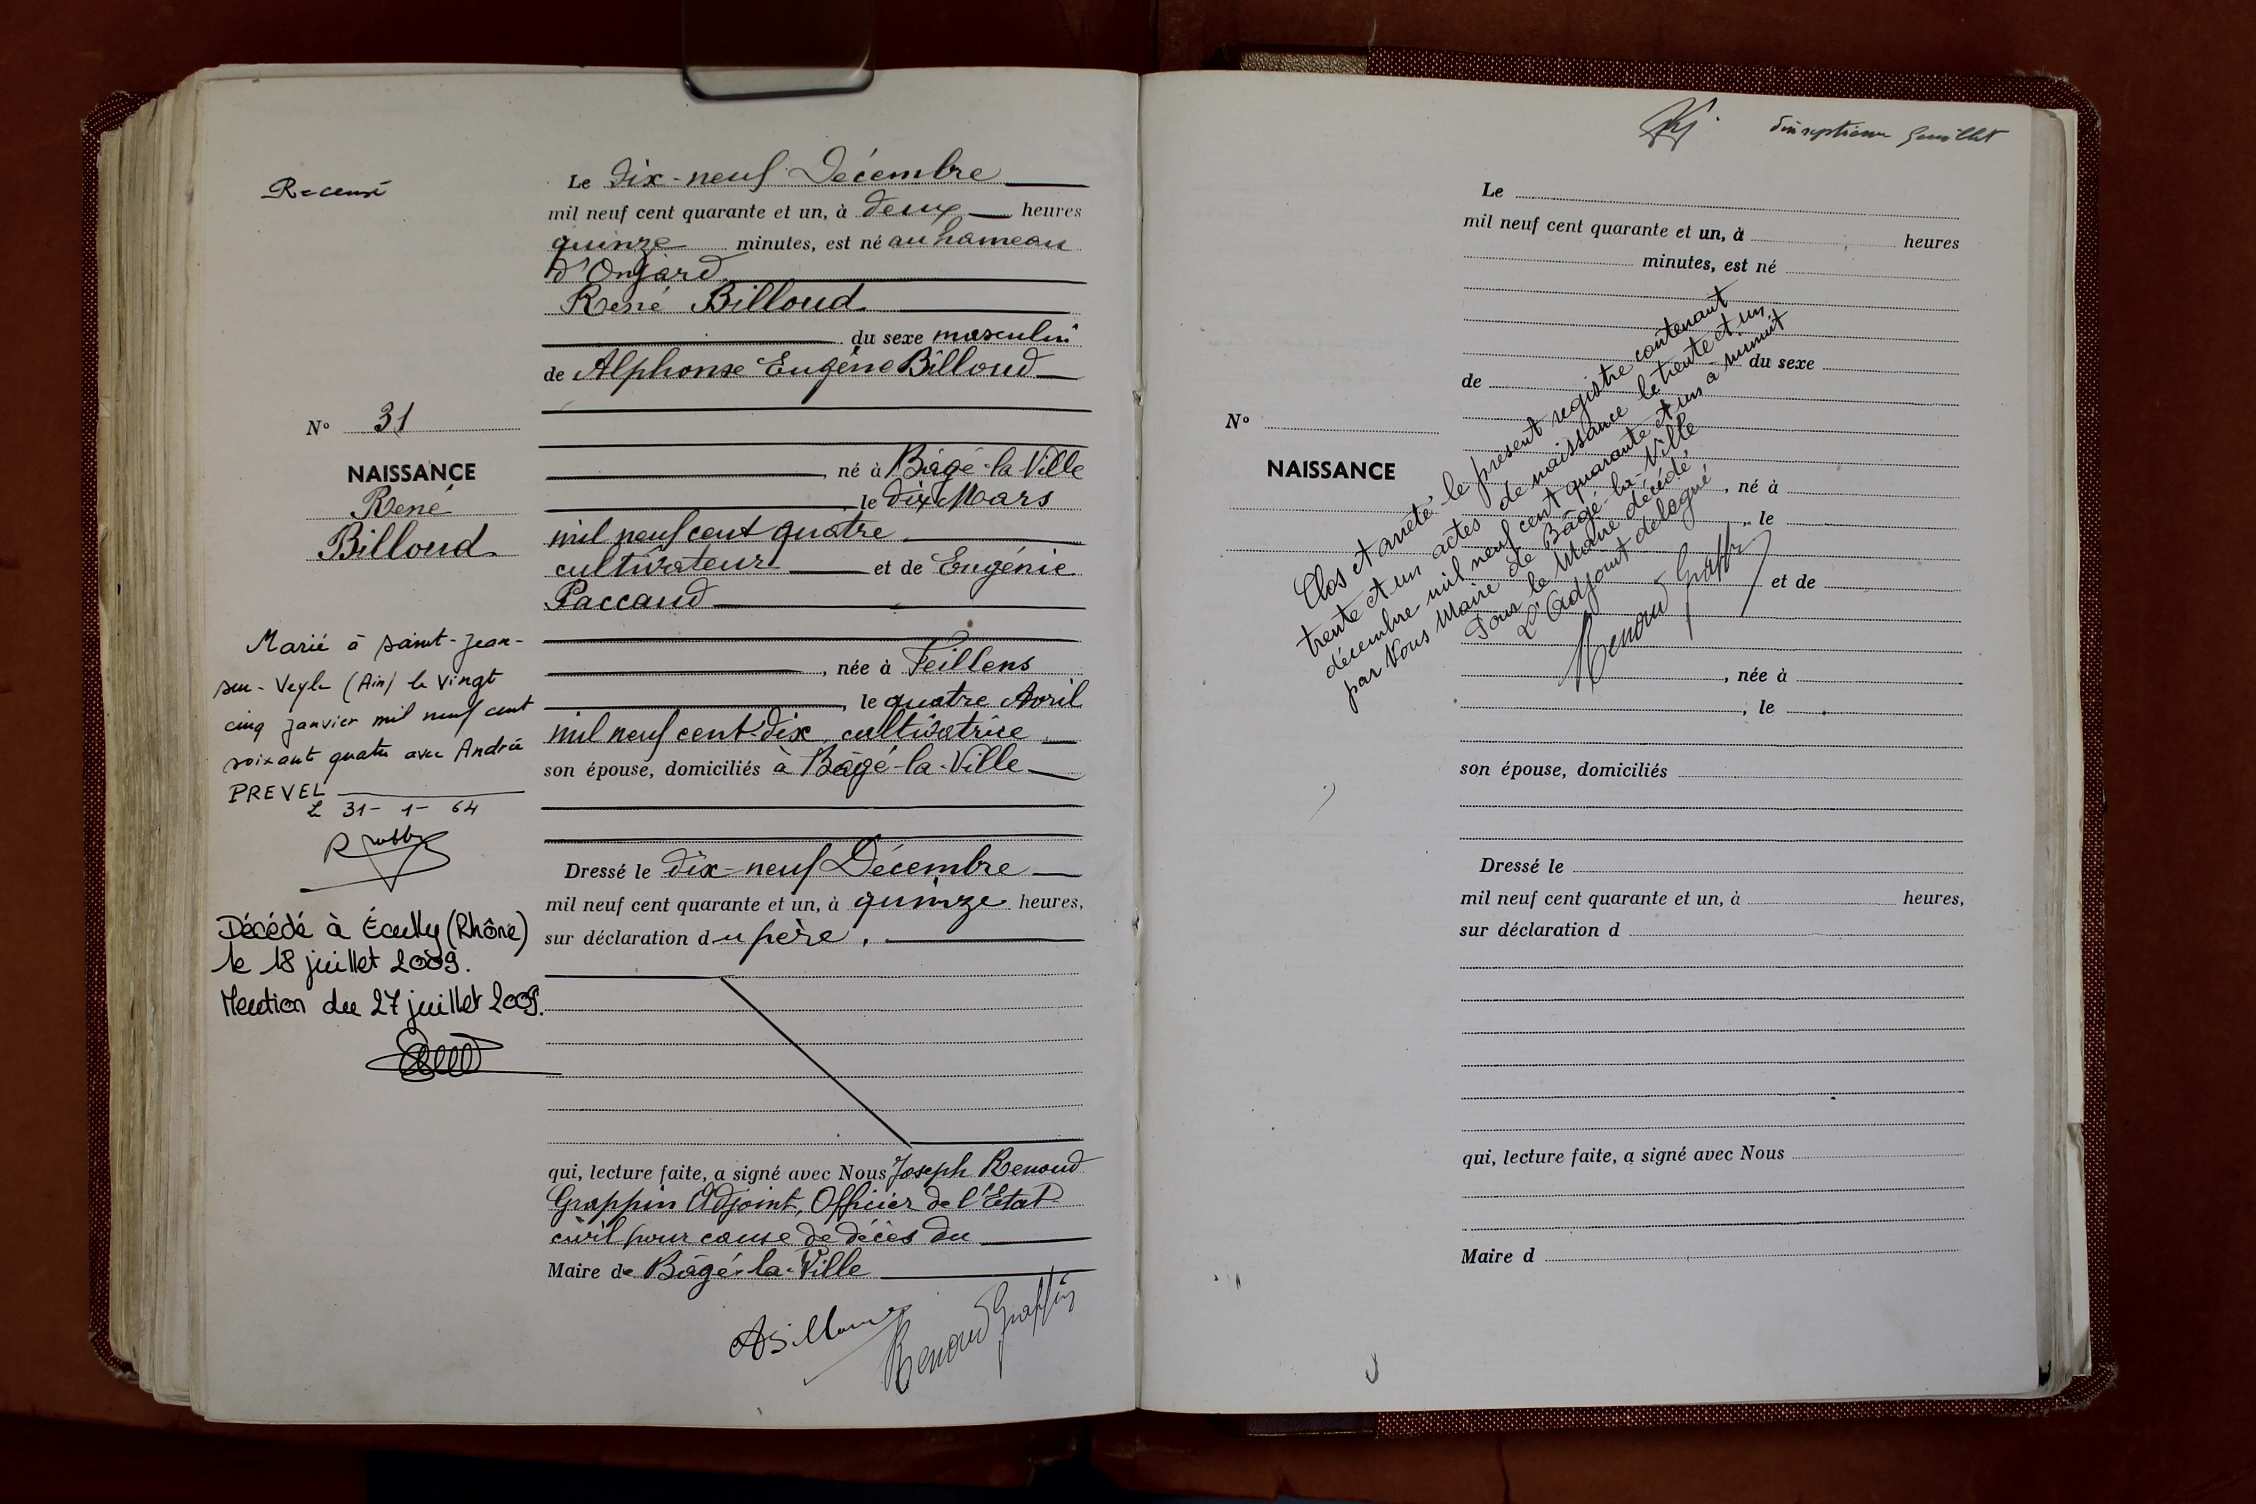 Recensé
Le dix-neuf Décembre
mil neuf cent quarante et un, à deux heures
quinze minutes, est né au hameau
d'Onjard
René Billoud
du sexe masculin
de Alphonse Eugène Billoud
né à Bâgé-la-Ville
le dix Mars
mil neuf cent quatre
cultivateur et de Eugénie
Paccaud
, née à Feillens
, le quatre Avril
mil neuf cent dix, cultivatrice
son épouse, domiciliés à Bâgé-la-Ville
Dressé le dix-neuf Décembre
mil neuf cent quarante et un, à quinze heures,
sur déclaration du père.
qui, lecture faite, a signé avec Nous Joseph Renoud
Grappin Adjoint, Officier de l'Etat
civil pour cause de décès du
Maire de Bâgé-la-Ville
ABilloud
Renoud Grappin
N° 31
NAISSANCE
René
Billoud
Marié à Saint-Jean-
sur-Veyle (Ain) le vingt
cinq janvier mil neuf cent
soixant quatre avec Andrée
PREVEL
Le 31-1-64
Décédé à Écully (Rhône)
le 18 juillet 2009.
Mention du 27 juillet 2009.
dix septième feuillet
Le
mil neuf cent quarante et un, à heures
minutes, est né
du sexe
de
N°
NAISSANCE
, né à
le
et de
, née à
, le
son épouse, domiciliés
Dressé le
mil neuf cent quarante et un, à heures,
sur déclaration d
qui, lecture faite, a signé avec Nous
Maire d
Clos et arrêté le présent registre contenant
trente et un actes de naissance le trente et un
décembre mil neuf cent quarante et un à minuit
par Nous Maire de Bâgé-la-Ville
Pour le Maire décédé
L'Adjoint délégué
Renoud Grappin